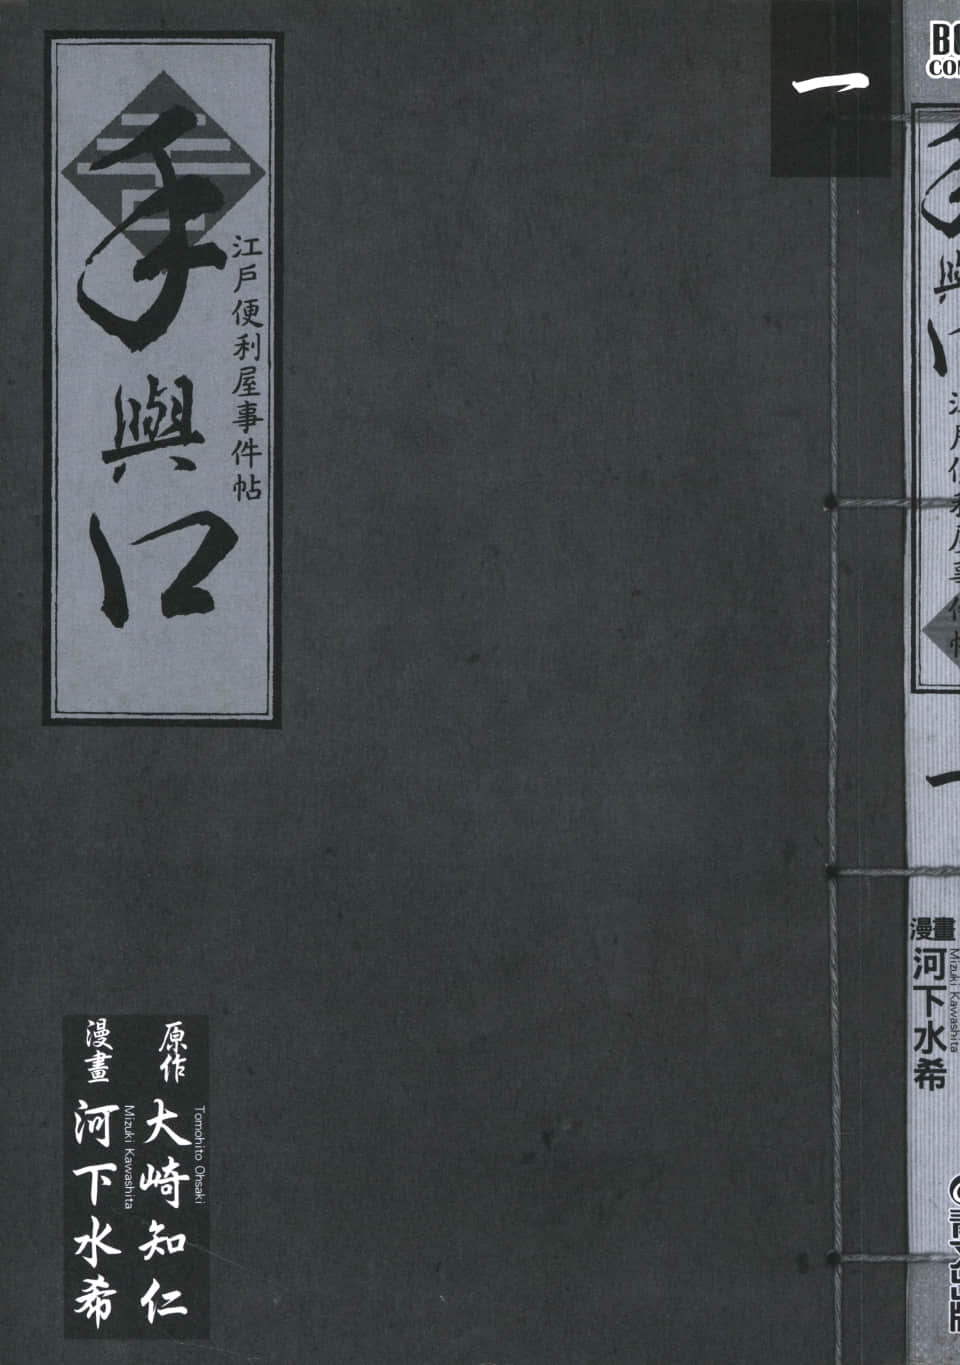 手與口
江戶便利屋事件帖
一
原作 大崎知仁
Tomohito Ohsaki
漫畫 河下水希
Mizuki Kawashita
手與口
江戶便利屋事件帖
一
漫畫 河下水希
Mizuki Kawashita